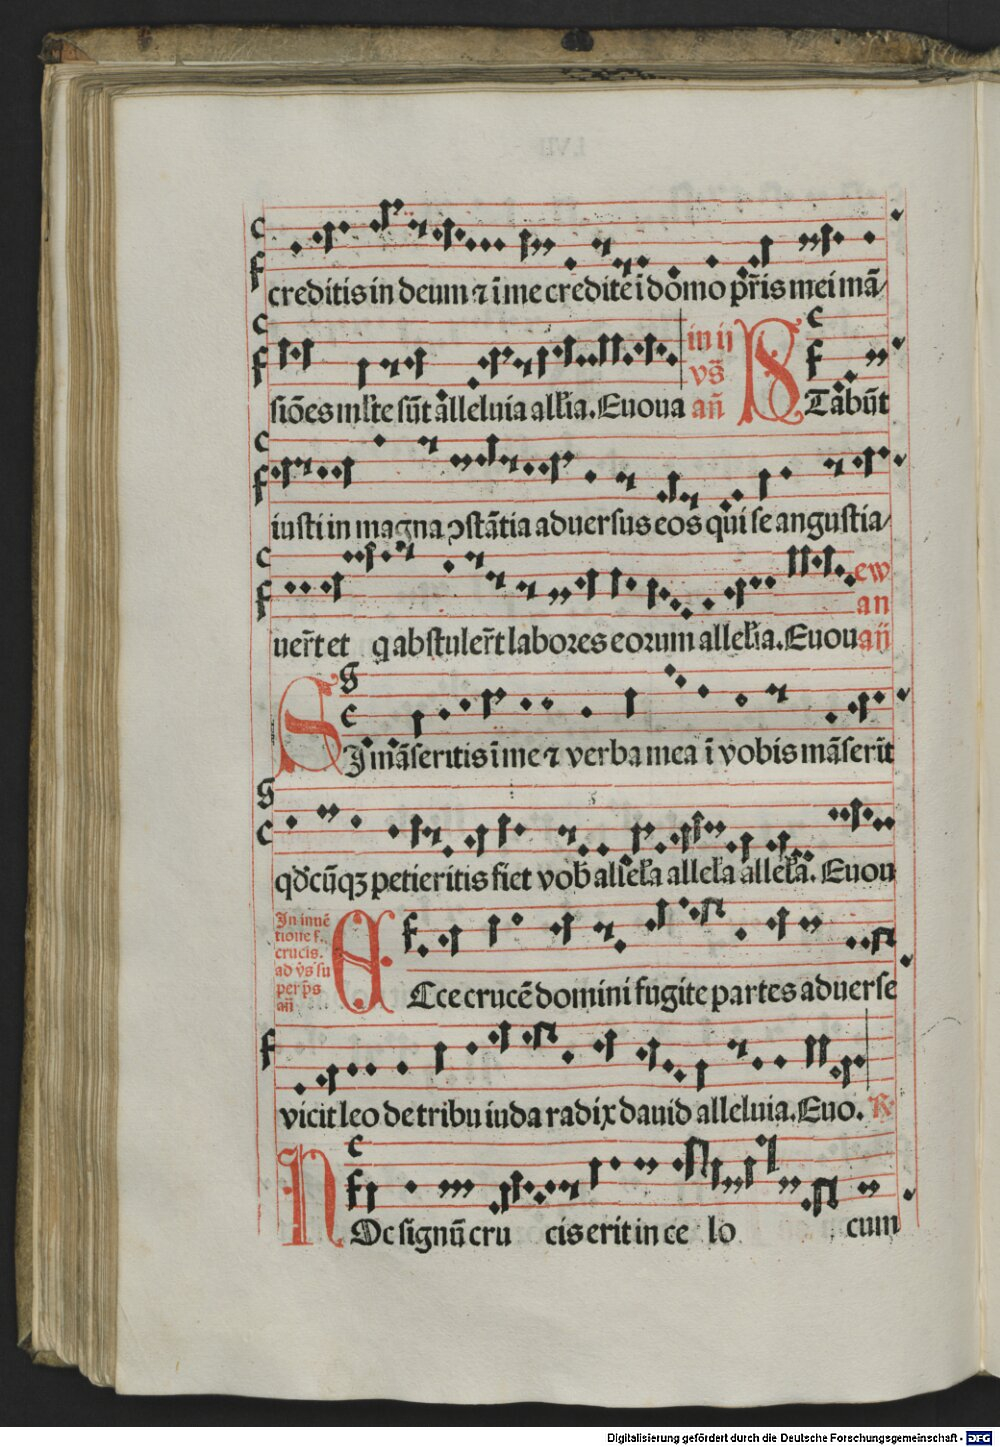 creditis in deum ⁊ ī me credite ī domo pr̄is mei mā/
siōes ml̄te sūt alleluia all̄ia. Euoua
in ij
vs̄
an̄
STabūt
iusti in magna ↄstātia aduersus eos qui se angustia/
uer̄t et q abstuler̄t labores eorum allel̄ia. Euou
ew
an
an̄
SI māseritis ī me ⁊ verba mea ī vobis māserīt
qd̄cūqꝫ petieritis fiet vob̄ allel̄a allel̄a allel̄a. Euou
In inuē
tione s.
crucis.
ad vs̄ su
per ps̄
an̄
ECce crucē domini fugite partes aduerse
vicit leo de tribu iuda radix dauid alleluia. Euo. R.
HOc signū cru cis erit in ce lo cum
Digitalisierung gefördert durch die Deutsche Forschungsgemeinschaft - DFG